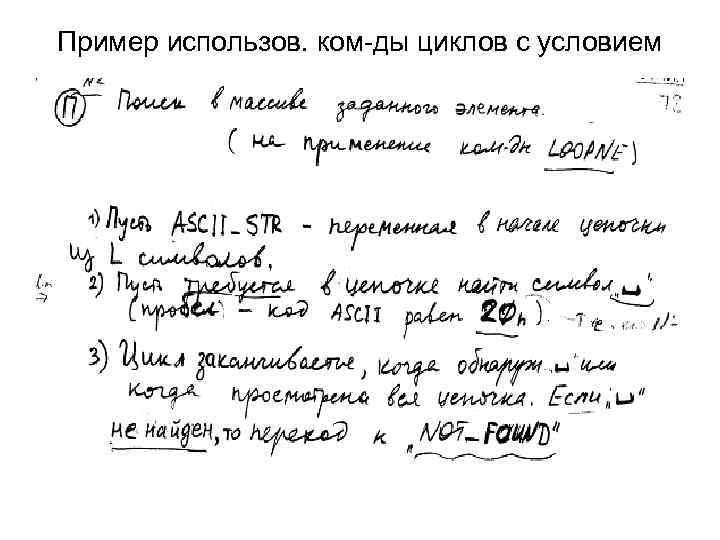 Пример использов. ком-ды циклов с условием
П Поиск в массиве заданного элемента.
(на применение ком-дн LOOPNE)
1) Пусть ASCII_STR - переменная в начале цепочки
из L символов.
2) Пусть требуется в цепочке найти символ „␣"
(пробел - код ASCII равен 20h).
3) Цикл заканчивается, когда обнаруж. „␣" или
когда просмотрена вся цепочка. Если „␣"
не найден, то переход к „NOT_FOUND"